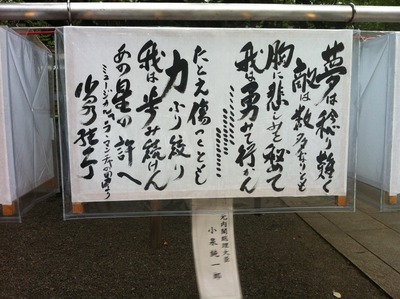 夢は稔り難く
敵は数多なりとも
胸に悲しみを秘めて
我は勇みて行かん
たとえ傷つくとも
力ふり絞り
我は歩み続けん
あの星の許へ
ミュージカル ラ・マンチャの男より
小泉純一郎
元内閣総理大臣
小泉純一郎